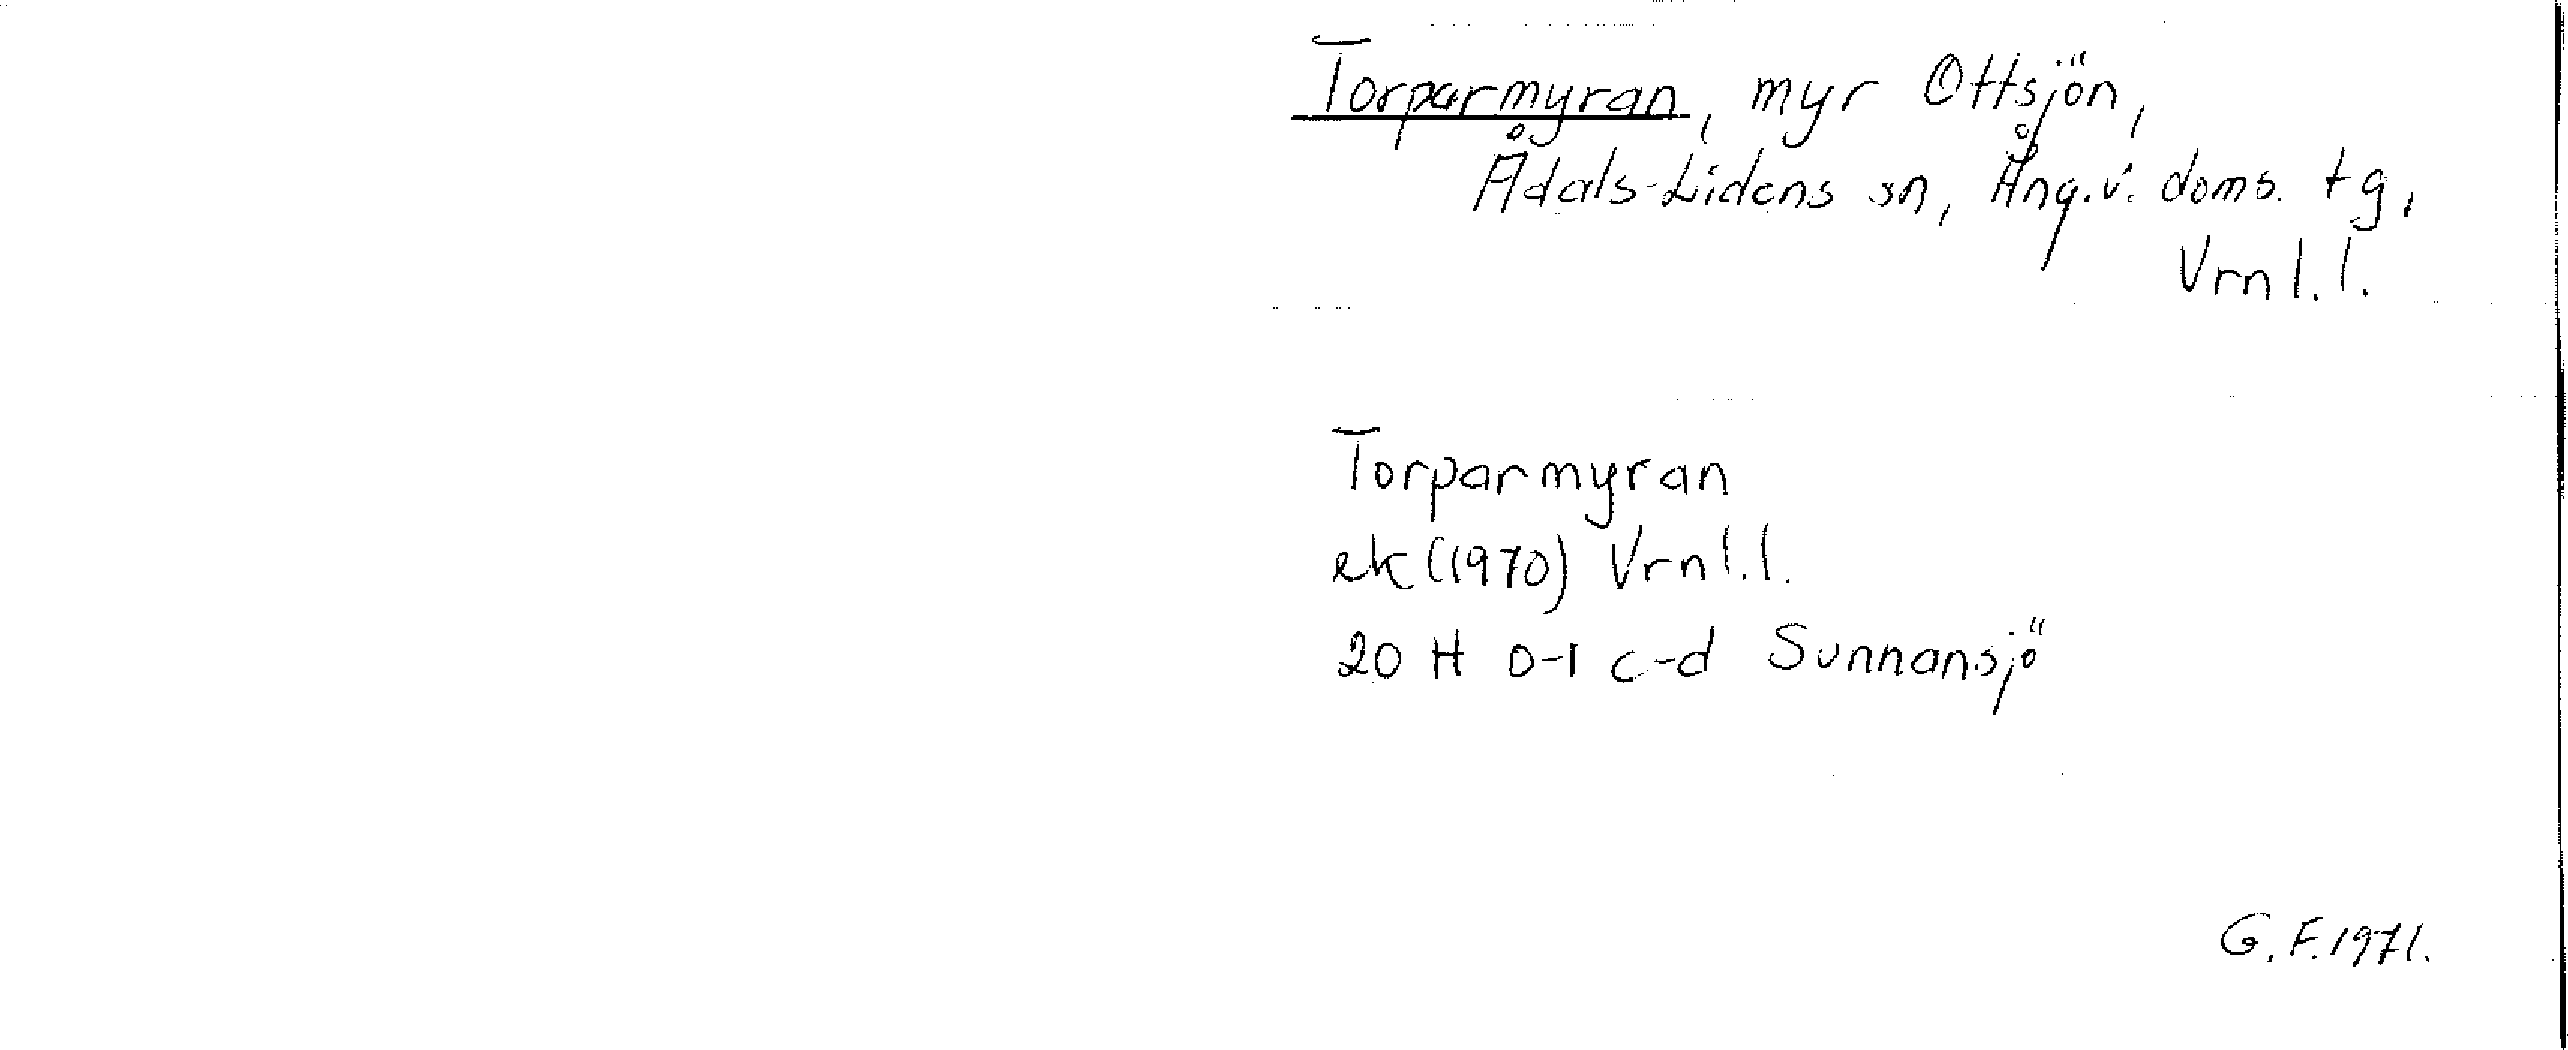 Torparmyran, myr Ottsjön,
Ådals-Lidens sn, Ång.v. doms. tg,
Vrnl.l.
Torparmyran
ek (1970) Vrnl.l.
20 H 0-1 c-d Sunnansjö
G.F.1971.